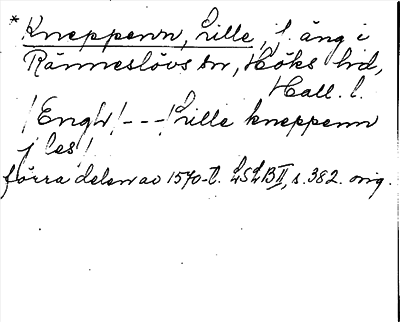 * Kneppenn, Lille, f. äng i
Ränneslövs sn, Höks hd,
Hall. l.
/Engh/ --- /Lille kneppenn
j les/
förra delen av 1570-t. LSLB II, s. 382. orig.